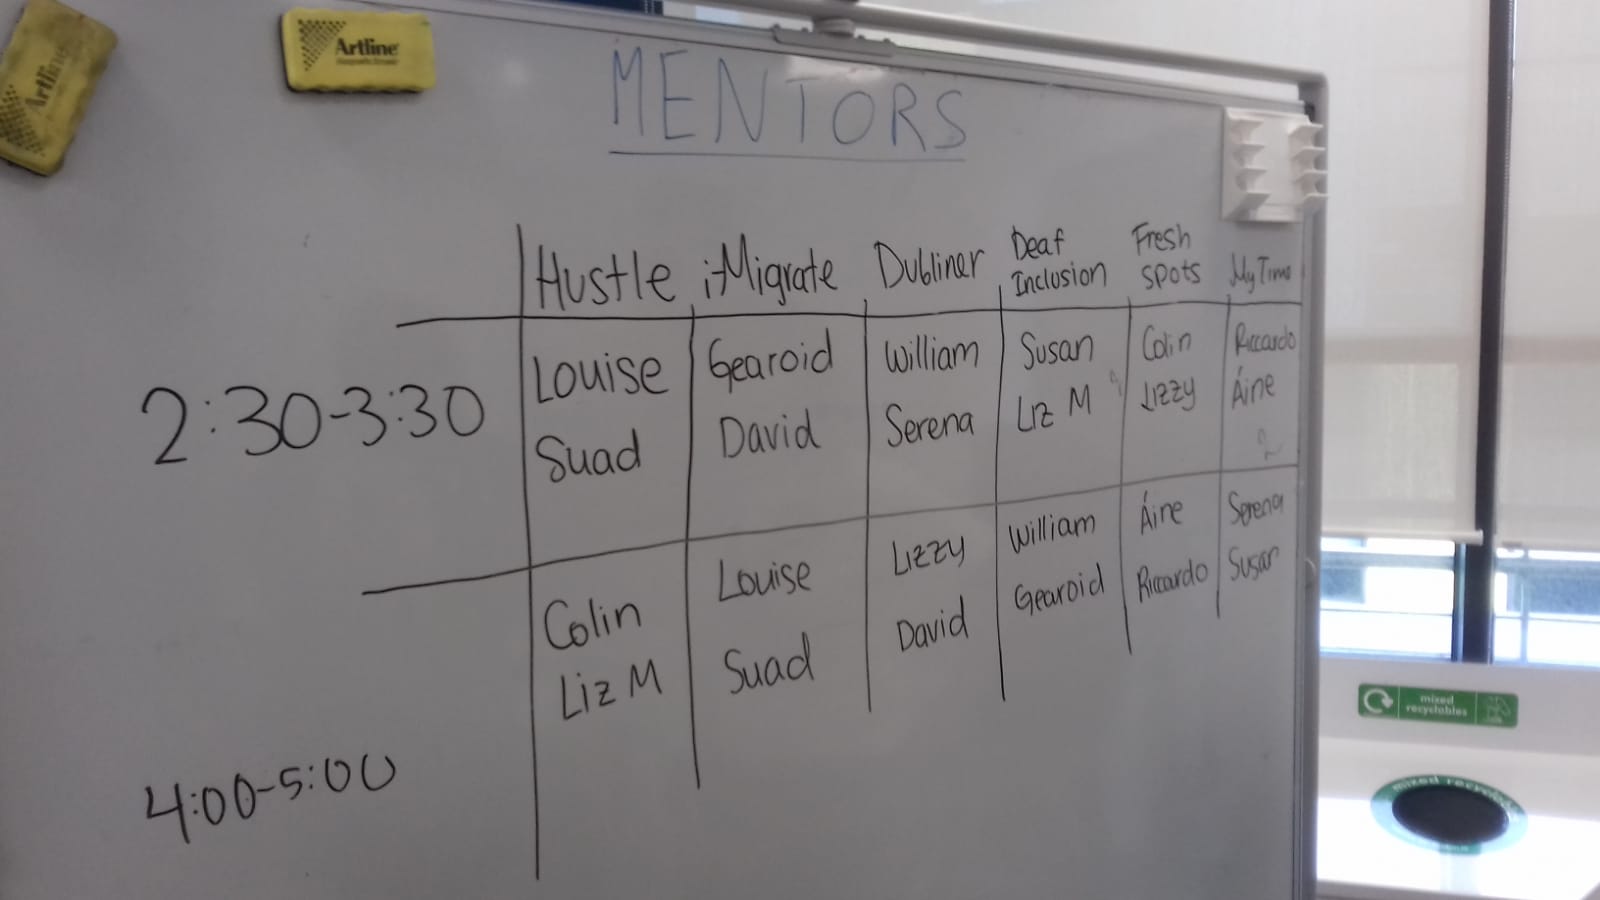 Artline
Artline
MENTORS
Hustle i-Migrate Dubliner Deaf Inclusion Fresh Spots My Time
2:30-3:30
Louise Gearoid William Susan Colin Riccardo
Suad David Serena Liz M Lizzy Áine
4:00-5:00
Colin Louise Lizzy William Áine Serena
Liz M Suad David Gearoid Riccardo Susan
mixed
recyclables
mixed recyclables